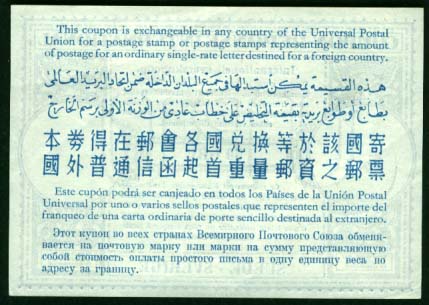 This coupon is exchangeable in any country of the Universal Postal
Union for a postage stamp or postage stamps representing the amount
of postage for an ordinary single-rate letter destined for a foreign country.
هذه القسيمة يمكن استبدالها في جميع البلدان الداخلة ضمن اتحاد البريد العالمى
بطابع أو طوابع بريد بقيمة التخليص على خطاب عادى من الوزنة الأولى برسم الخارج
本券得在郵會各國兌換等於該國寄
國外普通信函起首重量郵資之郵票
Este cupón podrá ser canjeado en todos los Países de la Unión Postal
Universal por uno o varios sellos postales que representen el importe del
franqueo de una carta ordinaria de porte sencillo destinada al extranjero.
Этот купон во всех странах Всемирного Почтового Союза обмени-
вается на почтовую марку или марки на сумму представляющую
собой стоимость оплаты простого письма в одну единицу веса по
адресу за границу.